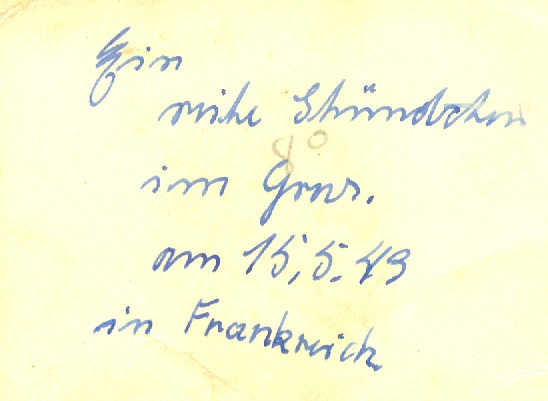 Ein
ruhe Stündchen
8°
im Gras.
am 15.5.43
in Frankreich